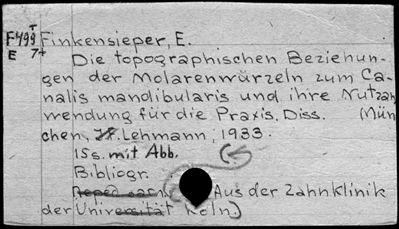 T
F499 Finkensieper, E.
E 7t Die topographischen Beziehun-
gen der Molarenwürzeln zum Ca-
nalis mandibularis und ihre Nutzan-
wendung für die Praxis. Diss. (Mün
chen, Lehmann, 1933.
15 s. mit Abb. (
Bibliogr.
Aus der Zahnklinik
der Universität Köln.)